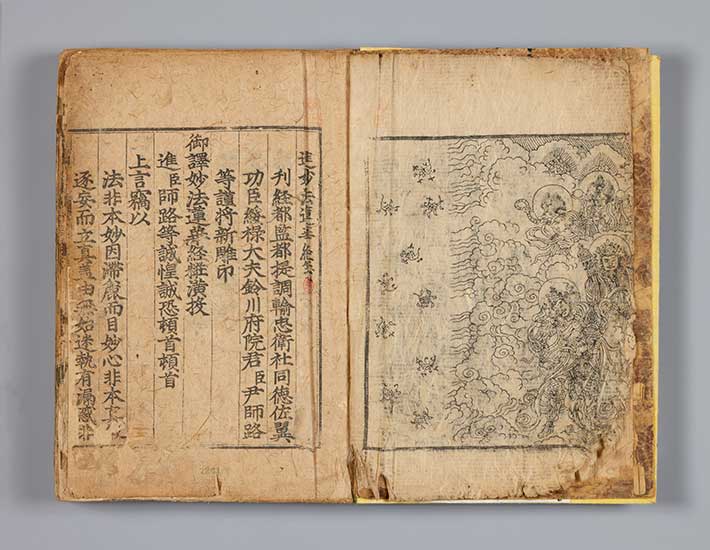 進妙法蓮華経箋
刊経都監都提調輸忠衛社同德佐翼
功臣綏祿大夫鈴川府院君臣尹師路
等謹將新雕印
御譯妙法蓮華経粧潢投
進臣師路等誠惶誠恐頓首頓首
上言竊以
法非本妙因滯麁而目妙心非本真
逐妄而立真盖由無始迷執有漏惑非